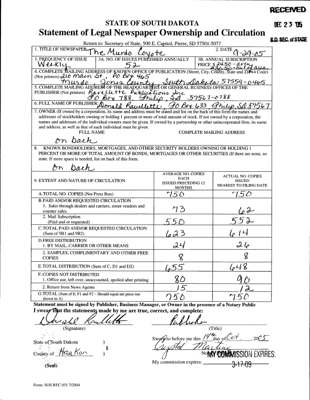 RECEIVED
DEC 23 '05
S.D. SEC. of STATE
STATE OF SOUTH DAKOTA
Statement of Legal Newspaper Ownership and Circulation
Return to: Secretary of State, 500 E. Capitol, Pierre, SD 57501-5077
1. TITLE OF NEWSPAPER The Murdo Coyote
2. DATE 9-29-05
3. FREQUENCY OF ISSUE
3A. NO. OF ISSUES PUBLISHED ANNUALLY
3B. ANNUAL SUBSCRIPTION
Weekly 52 PRICE
4. COMPLETE MAILING ADDRESS OF KNOWN OFFICE OF PUBLICATION (Street, City, County, State and Zip+4 Code)
(Not printers) PO Box 465
Murdo, Jones County, South Dakota 57559-0465
5. COMPLETE MAILING ADDRESS OF THE HEADQUARTERS OR GENERAL BUSINESS OFFICES OF THE
PUBLISHER (Not printers) Ravellette Publications Inc.
PO Box 788 Philip, SD 57567-0788
6. FULL NAME OF PUBLISHER: Donald Ravellette PO Box 633 Philip, SD 57567
7. OWNER (If owned by corporation, its name and address must be stated and list on the back of this form the names and
addresses of stockholders owning or holding 1 percent or more of total amount of stock. If not owned by a corporation, the
names and addresses of the individual owners must be given. If owned by a partnership or other unincorporated firm, its name
and address, as well as that of each individual must be given.
FULL NAME COMPLETE MAILING ADDRESS
on back
8. KNOWN BONDHOLDERS, MORTGAGES, AND OTHER SECURITY HOLDERS OWNING OR HOLDING 1
PERCENT OR MORE OF TOTAL AMOUNT OF BONDS, MORTGAGES OR OTHER SECURITIES (If there are none, so
state. If more space is needed, list on back of this form.
on back
9. EXTENT AND NATURE OF CIRCULATION
AVERAGE NO. COPIES
EACH
ISSUED PRECEDING 12
MONTHS
ACTUAL NO. COPIES
ISSUED
NEAREST TO FILING DATE
A. TOTAL NO. COPIES (Net Press Run) 750 750
B. PAID AND/OR REQUESTED CIRCULATION
1. Sales through dealers and carriers, street vendors and
counter sales. 73 62
2. Mail Subscription
(Paid and or requested) 550 552
C TOTAL PAID AND/OR REQUESTED CIRCULATION
(Sum of 9B1 and 9B2) 623 614
D. FREE DISTRIBUTION
1. BY MAIL, CARRIER OR OTHER MEANS 24 26
2. SAMPLES, COMPLIMENTARY AND OTHER FREE
COPIES 8 8
E. TOTAL DISTRIBUTION (Sum of C, D1 and D2) 655 648
F. COPIES NOT DISTRIBUTED
1. Office use, left over, unaccounted, spoiled after printing 80 90
2. Return from News Agents 15 12
G. TOTAL (Sum of E, F1 and F2 - Should equal net press run
shown in A) 750 750
Statement must be signed by Publisher, Business Manager, or Owner in the presence of a Notary Public
I swear that the statements made by me are true, correct, and complete:
Publisher
(Signature) (Title)
State of South Dakota )
Sworn to before me this 19th day of Oct 2005
County of Haakon )
MY COMMISSION EXPIRES:
My commission expires: 3-17-09
(Seal)
Form: SOS REC 051 7/2004